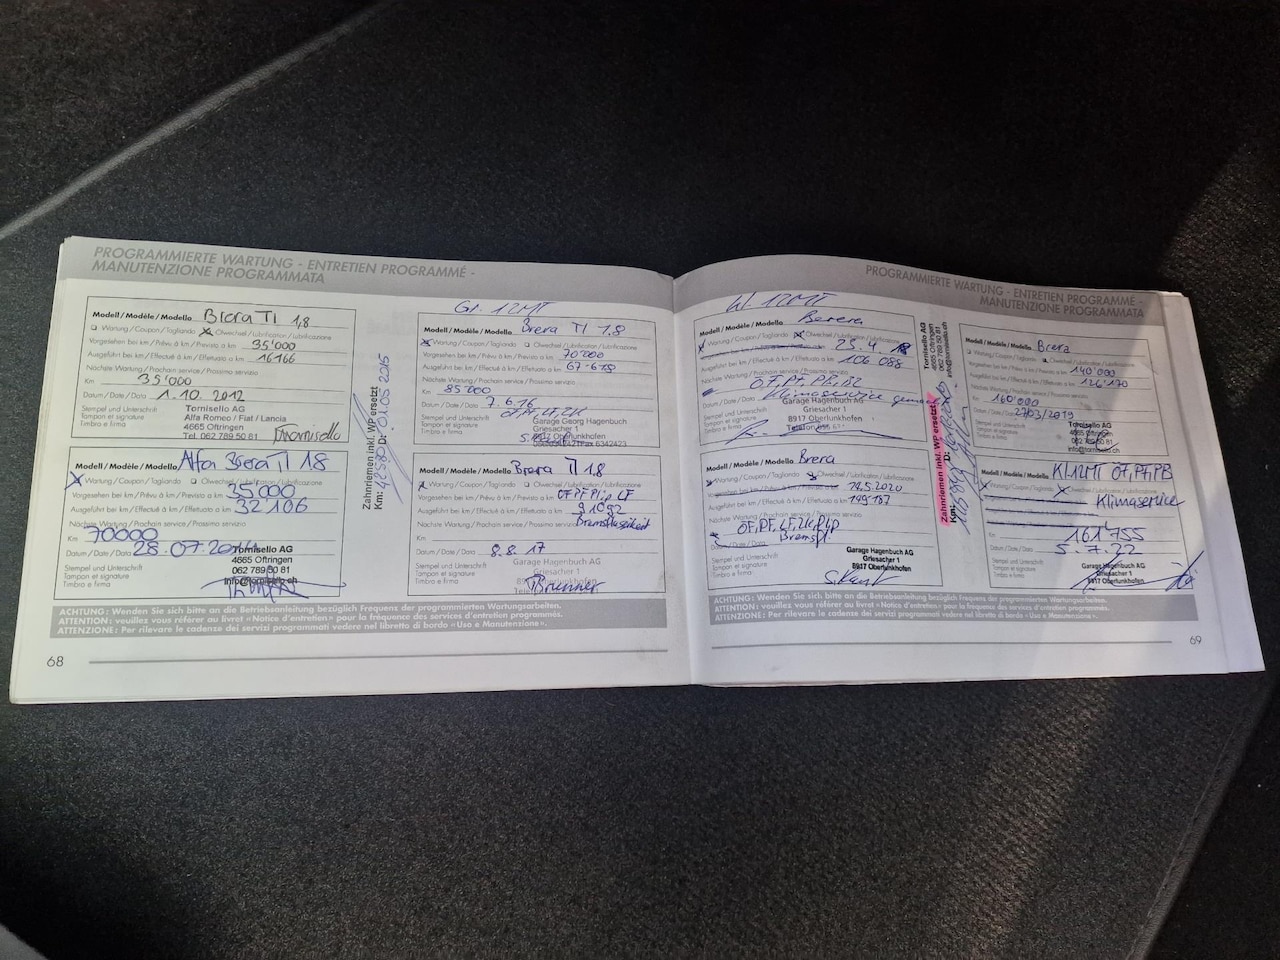 PROGRAMMIERTE WARTUNG - ENTRETIEN PROGRAMMÉ -
MANUTENZIONE PROGRAMMATA
Modell / Modèle / Modello Brera TI 1,8
Wartung / Coupon / Tagliando Ölwechsel / Lubrification / Lubrificazione
Vorgesehen bei km / Prévu à km / Previsto a km 35'000
Ausgeführt bei km / Effectué à km / Effettuato a km 16166
Nächste Wartung / Prochain service / Prossimo servizio
Km 35'000
Datum / Date / Data 1.10.2012
Stempel und Unterschrift
Tampon et signature
Timbro e firma
Tornisello AG
Alfa Romeo / Fiat / Lancia
4665 Oftringen
Tel. 062 789 50 81
Modell / Modèle / Modello Alfa Brera TI 1.8
Wartung / Coupon / Tagliando Ölwechsel / Lubrification / Lubrificazione
Vorgesehen bei km / Prévu à km / Previsto a km 35000
Ausgeführt bei km / Effectué à km / Effettuato a km 32106
Nächste Wartung / Prochain service / Prossimo servizio
Km 70000
Datum / Date / Data 28.07.2014
Stempel und Unterschrift
Tampon et signature
Timbro e firma
Tornisello AG
4665 Oftringen
062 789 50 81
info@tornisello.ch
Zahnriemen inkl. WP ersetzt
Km: D: 01.05 2015
Gr. 12MT
Modell / Modèle / Modello Brera TI 1.8
Wartung / Coupon / Tagliando Ölwechsel / Lubrification / Lubrificazione
Vorgesehen bei km / Prévu à km / Previsto a km 70'000
Ausgeführt bei km / Effectué à km / Effettuato a km 67'678
Nächste Wartung / Prochain service / Prossimo servizio
Km 85'000
Datum / Date / Data 7.6.16
Stempel und Unterschrift
Tampon et signature
Timbro e firma
Garage Georg Hagenbuch
Griesacher 1
8917 Oberlunkhofen
Modell / Modèle / Modello Brera TI 1.8
Wartung / Coupon / Tagliando Ölwechsel / Lubrification / Lubrificazione
Vorgesehen bei km / Prévu à km / Previsto a km
Ausgeführt bei km / Effectué à km / Effettuato a km 91092
Nächste Wartung / Prochain service / Prossimo servizio Bremsflüssigkeit
Km
Datum / Date / Data 8.8.17
Stempel und Unterschrift
Tampon et signature
Timbro e firma
Garage Hagenbuch AG
Griesacher 1
Brunner
ACHTUNG: Wenden Sie sich bitte an die Betriebsanleitung bezüglich Frequenz der programmierten Wartungsarbeiten.
ATTENTION: veuillez vous référer au livret «Notice d'entretien» pour la fréquence des services d'entretien programmés.
ATTENZIONE: Per rilevare le cadenze dei servizi programmati vedere nel libretto di bordo «Uso e Manutenzione».
68
PROGRAMMIERTE WARTUNG - ENTRETIEN PROGRAMMÉ -
MANUTENZIONE PROGRAMMATA
W. 12MT
Modell / Modèle / Modello
Wartung / Coupon / Tagliando Ölwechsel / Lubrification / Lubrificazione
23.4.18
Ausgeführt bei km / Effectué à km / Effettuato a km 106 088
Nächste Wartung / Prochain service / Prossimo servizio
Klimaservice
Datum / Date / Data
Stempel und Unterschrift
Tampon et signature
Timbro e firma
Garage Hagenbuch AG
Griesacher 1
8917 Oberlunkhofen
Modell / Modèle / Modello Brera
Wartung / Coupon / Tagliando Ölwechsel / Lubrification / Lubrificazione
14.5.2020
Ausgeführt bei km / Effectué à km / Effettuato a km 149'187
Nächste Wartung / Prochain service / Prossimo servizio
Bremsfl.
Datum / Date / Data
Stempel und Unterschrift
Tampon et signature
Timbro e firma
Garage Hagenbuch AG
Griesacher 1
8917 Oberlunkhofen
Tornisello AG
4665 Oftringen
062 789 50 81
info@tornisello.ch
Zahnriemen inkl. WP ersetzt
Km: D:
Modell / Modèle / Modello Brera
Wartung / Coupon / Tagliando Ölwechsel / Lubrification / Lubrificazione
Vorgesehen bei km / Prévu à km / Previsto a km 140'000
Ausgeführt bei km / Effectué à km / Effettuato a km 126'170
Nächste Wartung / Prochain service / Prossimo servizio
Km 160'000
Datum / Date / Data 27/03/2019
Stempel und Unterschrift
Tampon et signature
Timbro e firma
Tornisello AG
4665 Oftringen
info@tornisello.ch
Modell / Modèle / Modello Kl.12MT ÖF, PF, PB
Wartung / Coupon / Tagliando Ölwechsel / Lubrification / Lubrificazione
Klimaservice
Km 161'755
Datum / Date / Data 5.7.22
Stempel und Unterschrift
Tampon et signature
Timbro e firma
Garage Hagenbuch AG
Griesacher 1
8917 Oberlunkhofen
ACHTUNG: Wenden Sie sich bitte an die Betriebsanleitung bezüglich Frequenz der programmierten Wartungsarbeiten.
ATTENTION: veuillez vous référer au livret «Notice d'entretien» pour la fréquence des services d'entretien programmés.
ATTENZIONE: Per rilevare le cadenze dei servizi programmati vedere nel libretto di bordo «Uso e Manutenzione».
69